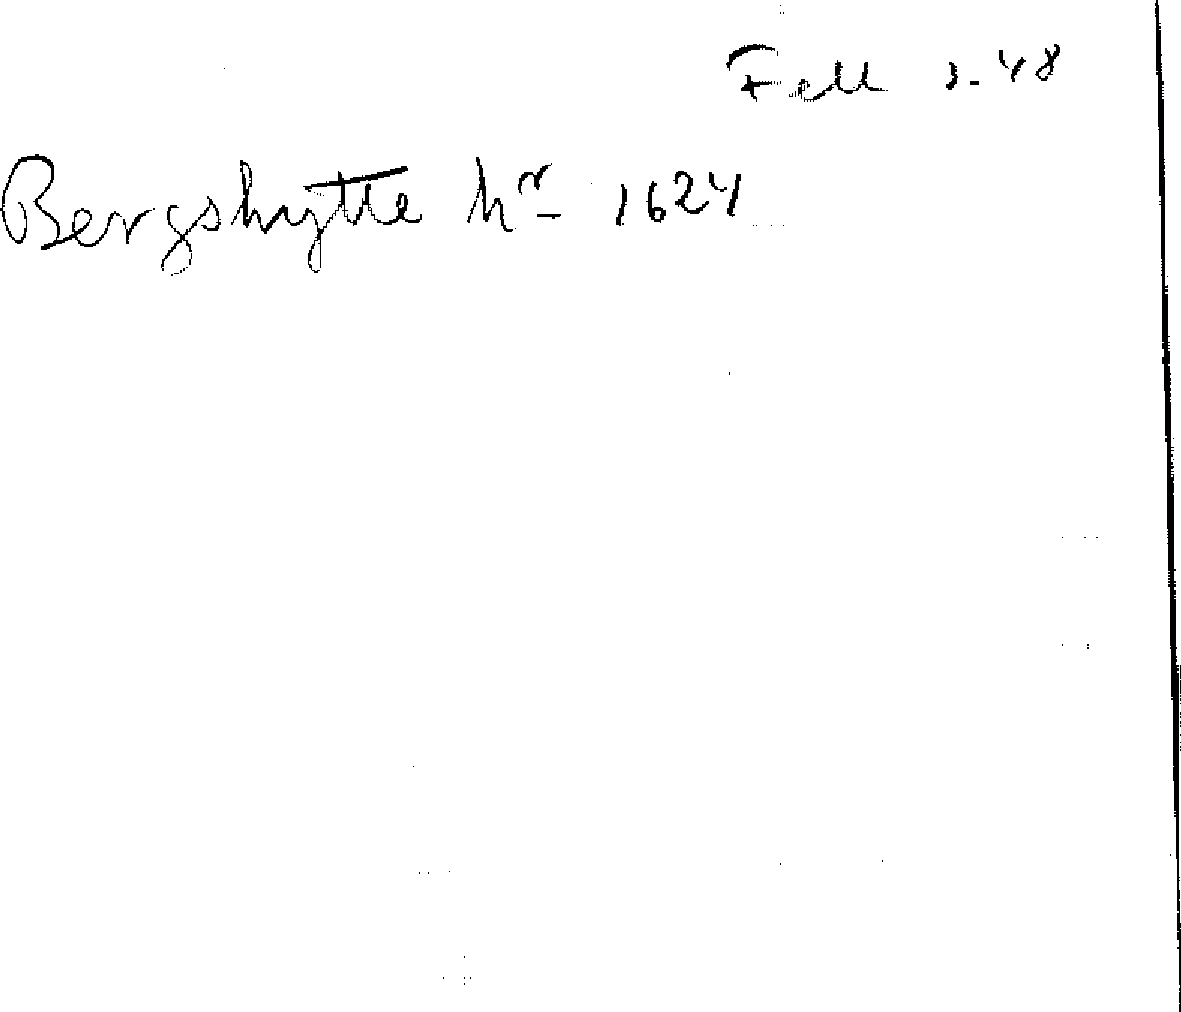 Fell 2-48
Bergshytte hr 1624